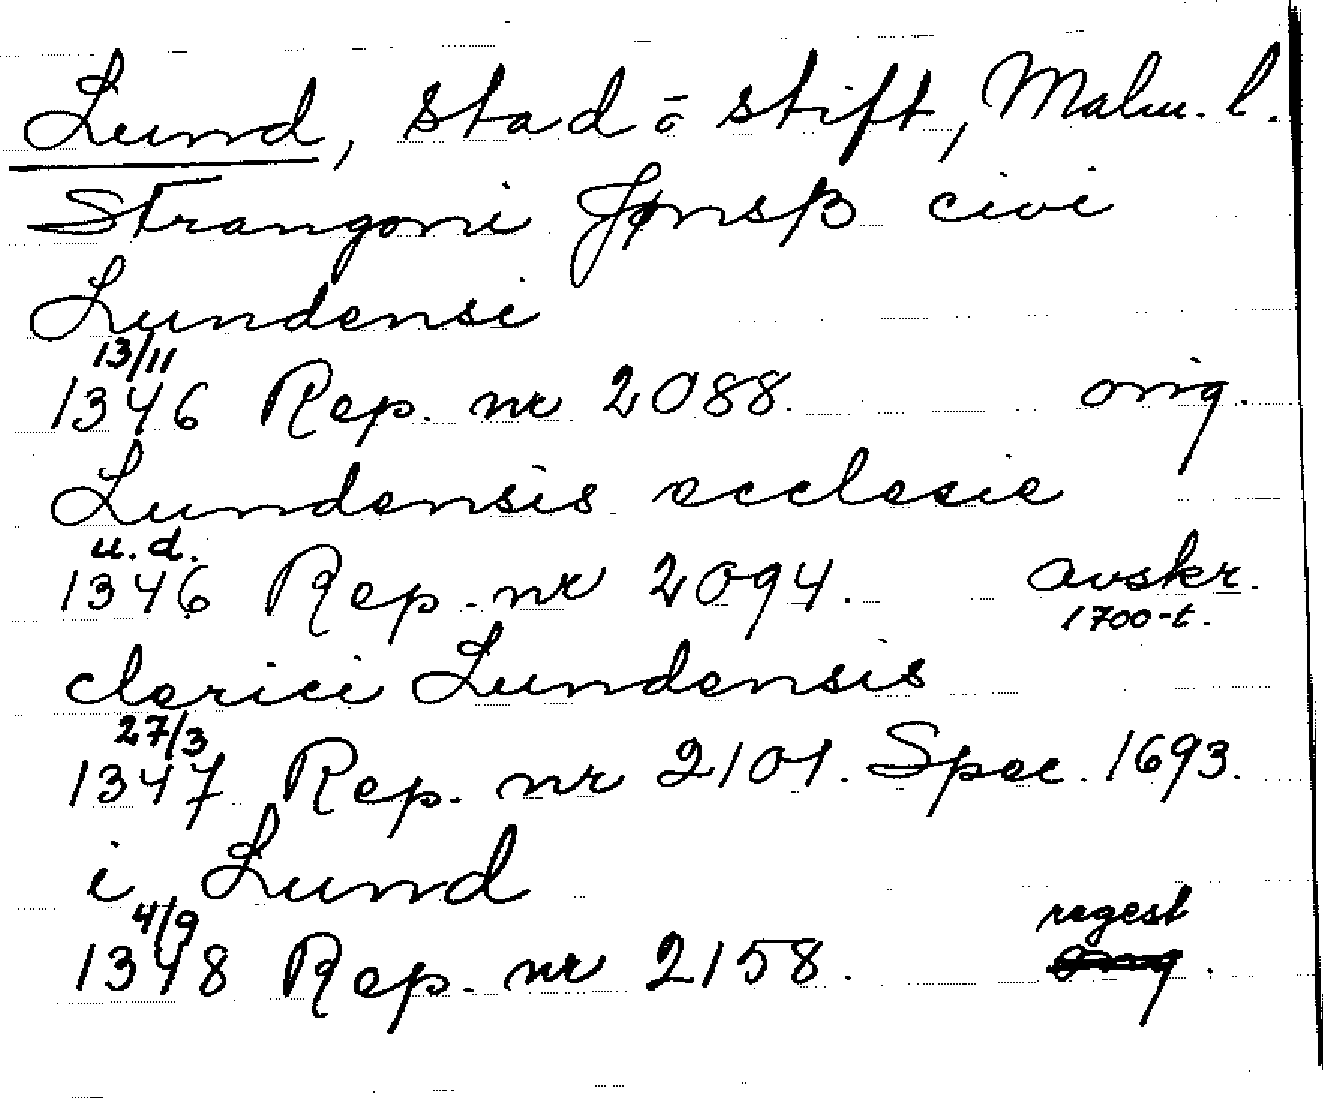 Lund, stad o stift, Malm. l.
Strangoni Jønsß civi
Lundensi
13/11
1346 Rep. nr 2088. orig.
Lundensis ecclesie
u. d.
1346 Rep. nr 2094. avskr.
1700-t.
clerici Lundensis
27/3
1347 Rep. nr 2101. Spec. 1693.
i Lund
4/9 regest
1348 Rep. nr 2158. orig.